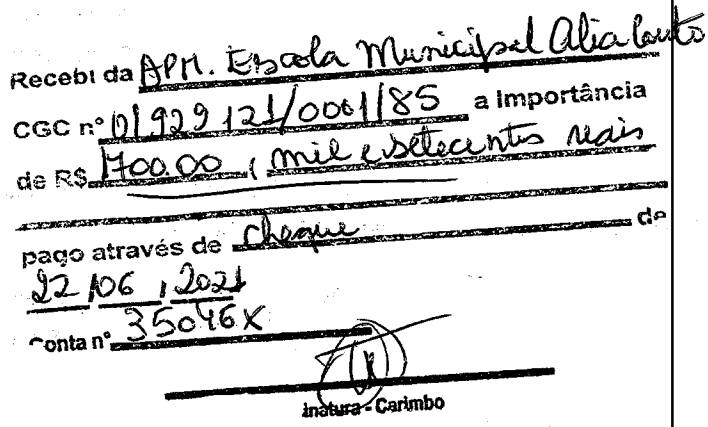 Recebi da APM. Escola Municipal Alia
CGC nº 01.929 121/0001/85 a Importância
de R$ 1700.00, (mil e setecentos reais
pago através de cheque de
22/06/2021
Conta nº 35046X
inatura - Carimbo